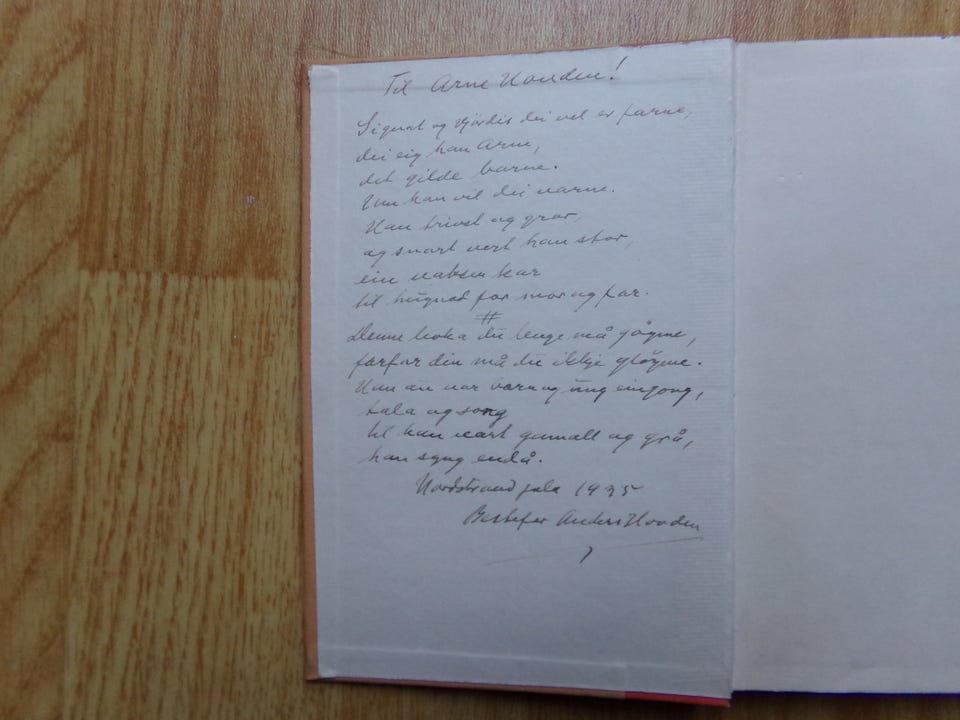 Til Arne Hovden!
og Hjördis dei vel er farne,
dei eig han Arne,
det gilde barne.
Um han vil dei varne.
Han trivst og gror,
og snart vert han stor,
ein vaksen kar
til hugnad for mor og far.
#
Denne boka du lenge må göyme,
farfar din må du ikkje glöyme.
Han au var barn og ung eingong,
tala og song
til han vart gamall og grå,
han syng endå.
Nordstrand jula 1935
Bestefar Anders Hovden